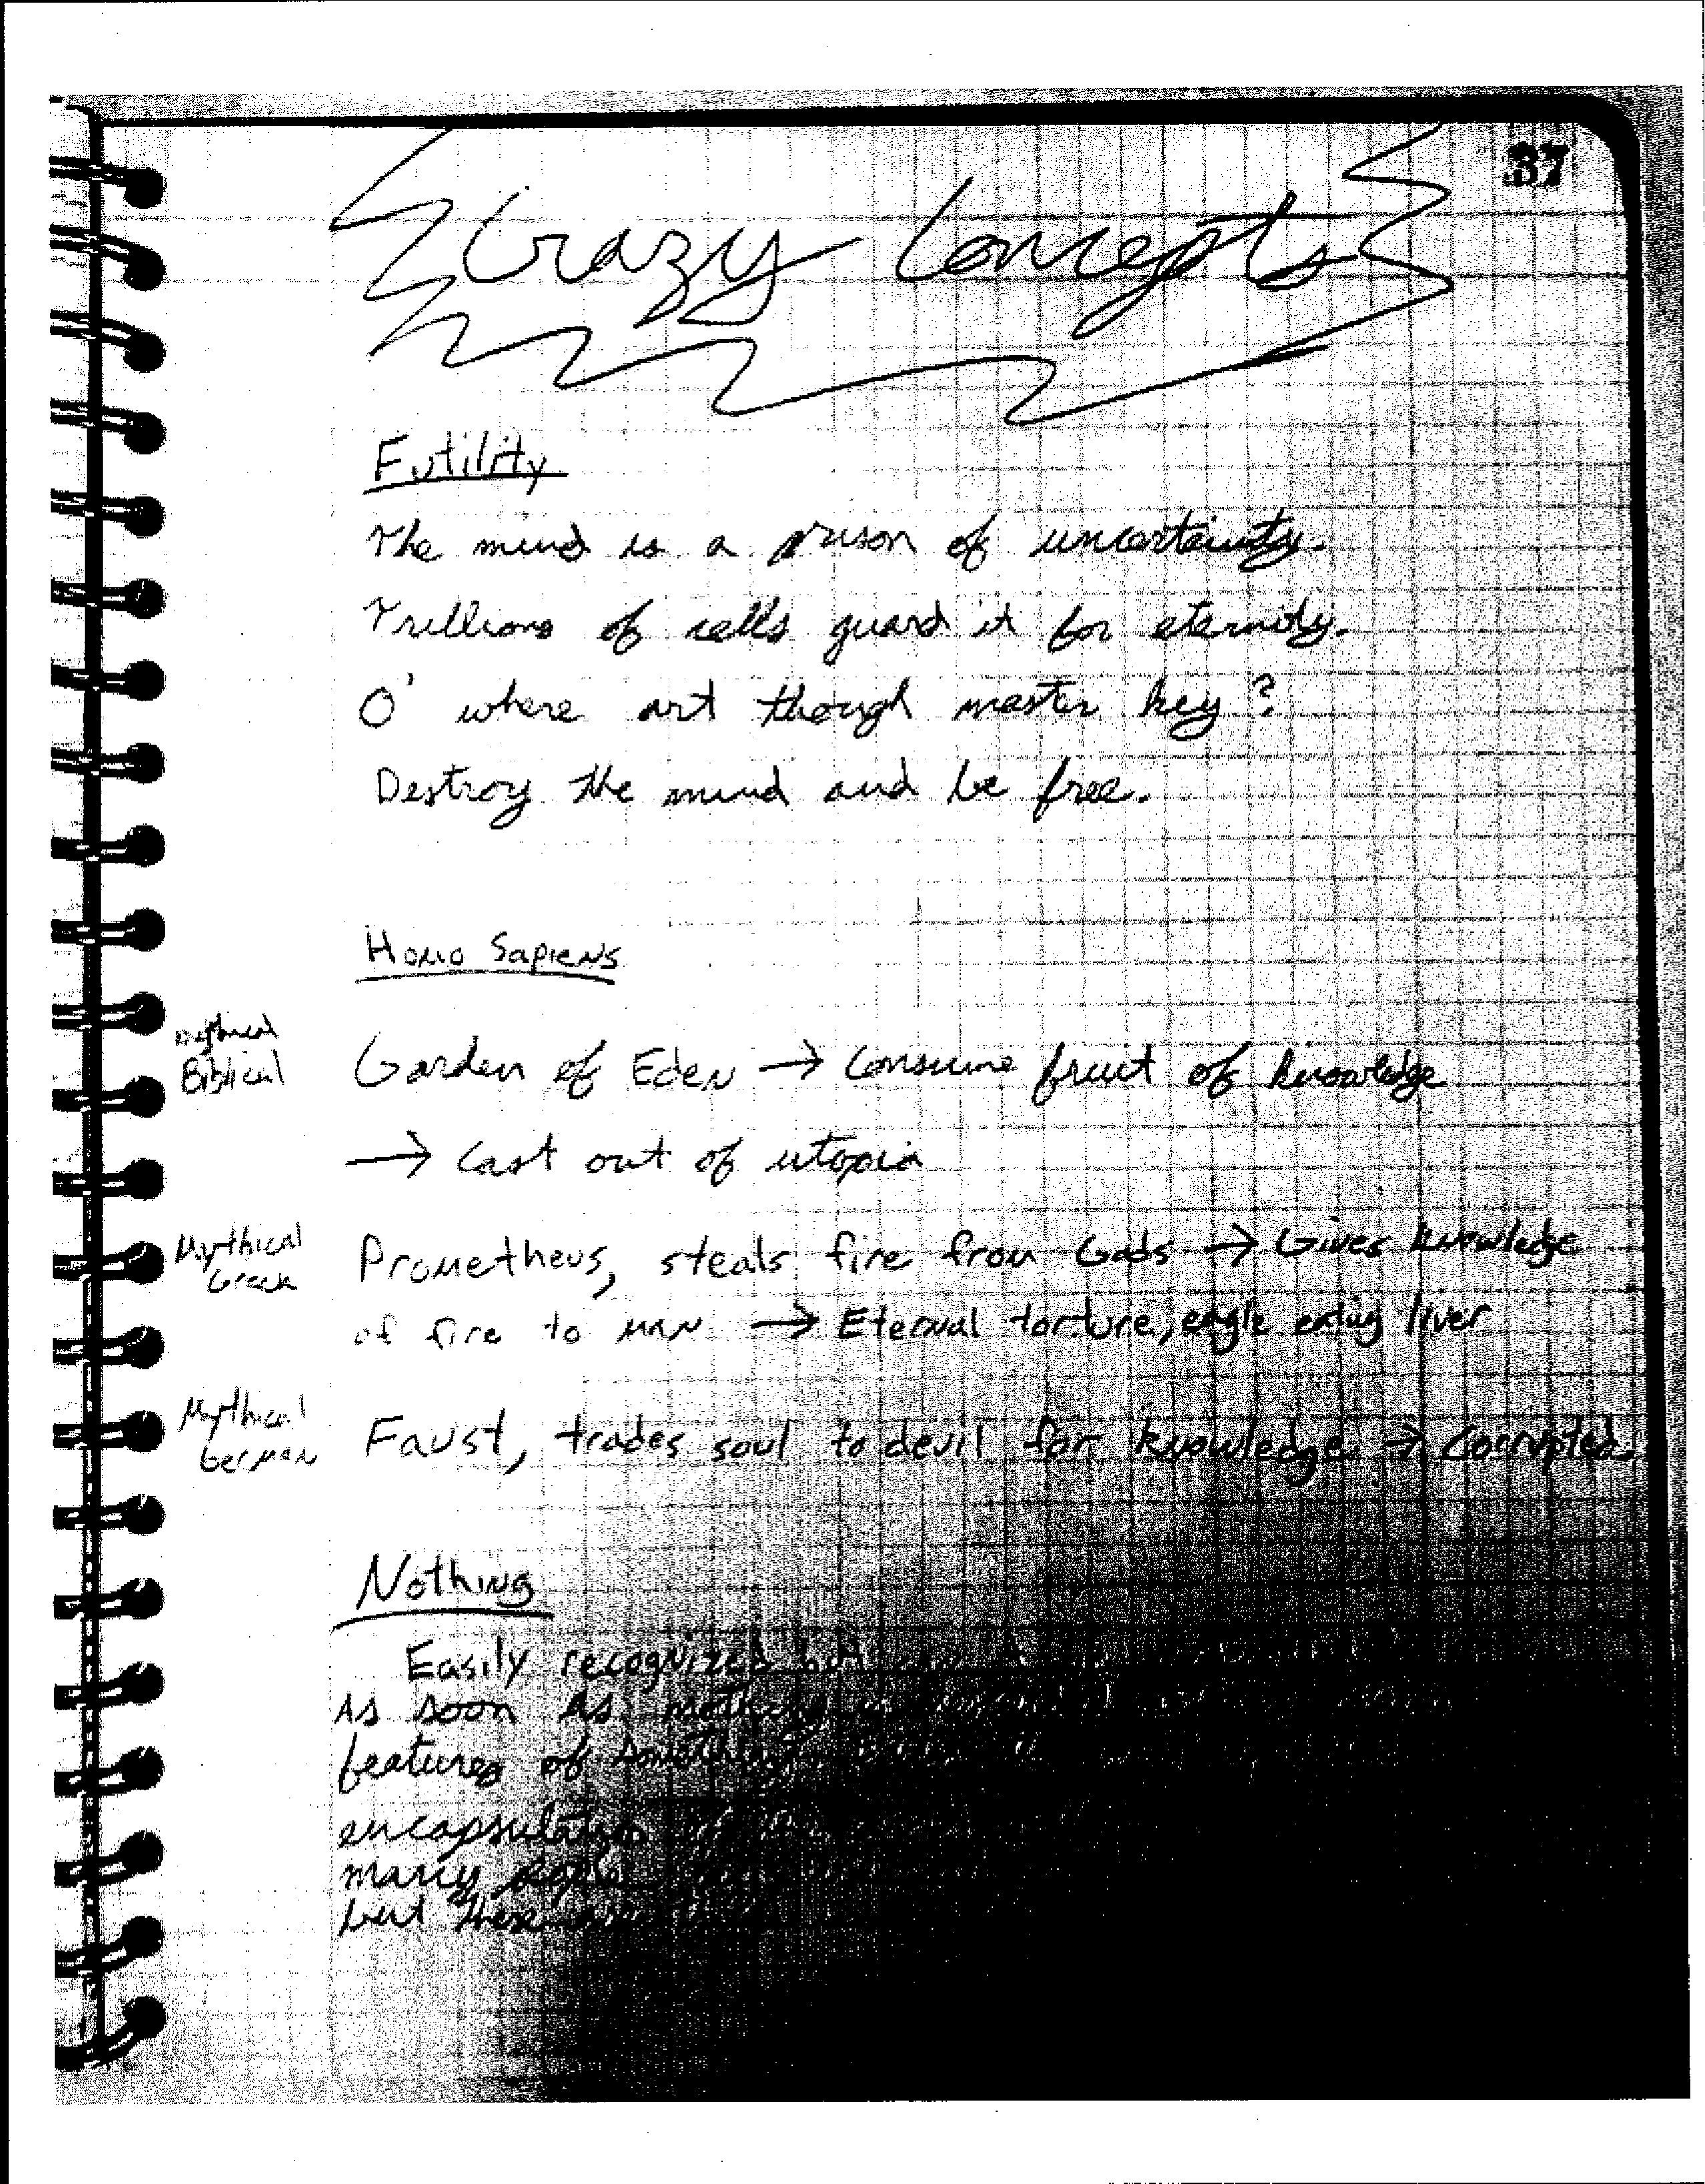 37
Crazy Concepts
Futility
The mind is a prison of uncertainty.
Trillions of cells guard it for eternity.
O' where art though master key?
Destroy the mind and be free.
Homo Sapiens
Mythical
Biblical
Garden of Eden → Consume fruit of knowledge
→ Cast out of utopia
Mythical
Greek
Prometheus, steals fire from Gods → Gives knowledge
of fire to man → Eternal torture, eagle eating liver
Mythical
German
Faust, trades soul to devil for knowledge → Corrupted.
Nothing
Easily recognized but
As soon as nothing is
features of something
encapsulation
many
but these